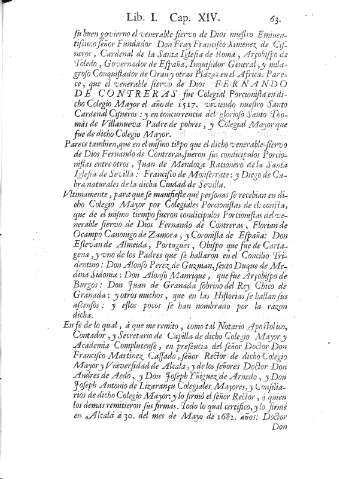 Lib. I. Cap. XIV. 63.
su buen govierno el venerable siervo de Dios nuestro Eminen-
tissimo señor Fundador Don Fray Francisco Ximenez de Cis-
neros, Cardenal de la Santa Iglesia de Roma, Arçobispo de
Toledo, Governador de España, Inquisidor General, y mila-
groso Conquistador de Oran y otras Plazas en el Africa. Pare-
ce, que el venerable siervo de Dios FERNANDO
DE CONTRERAS fue Colegial Porcionista en di-
cho Colegio Mayor el año de 1517. viviendo nuestro Santo
Cardenal Cisneros: y en concurrencia del glorioso Santo Tho-
màs de Villanueva Padre de pobres, y Colegial Mayor que
fue de dicho Colegio Mayor.
Parece tambien, que en el mismo tiẽpo que el dicho venerable siervo
de Dios Fernando de Contreras, fueron sus condicipulos Porcio-
nistas entre otros, Juan de Mendoza Racionero de la Santa
Iglesia de Sevilla: Francisco de Monserrate: y Diego de Ca-
bra naturales de la dicha Ciudad de Sevilla.
Vltimamente, para que se manifieste què personas se recebian en di-
cho Colegio Mayor por Colegiales Porcionistas de el; consta,
que de el mismo tiempo fueron condicipulos Porcionistas del ve-
nerable siervo de Dios Fernando de Contreras, Florian de
Ocampo Canonigo de Zamora, y Coronista de España: Don
Estevan de Almeida, Portugues, Obispo que fue de Carta-
gena, y vno de los Padres que se hallaron en el Concilio Tri-
dentino: Don Alonso Perez de Guzman, sexto Duque de Me-
dina Sidonia: Don Alonso Manrique, que fue Arçobispo de
Burgos: Don Juan de Granada sobrino del Rey Chico de
Granada: y otros muchos, que en las Historias se hallan sus
ascensos: y estos pocos se han nombrado por la razon
dicha.
En fè de lo qual, à que me remito, como tal Notario Apostolico,
Contador, y Secretario de Capilla de dicho Colegio Mayor y
Academia Complutense, en presencia del señor Doctor Don
Francisco Martinez Cassado, señor Rector de dicho Colegio
Mayor y Vniversidad de Alcalà; y de los señores Doctor Don
Andres de Aedo, y Don Joseph Yñiguez de Arnedo, y Don
Joseph Antonio de Lizarançu Colegiales Mayores, y Consilia-
rios de dicho Colegio Mayor: y lo firmò el señor Rector, à quien
los demas remitieron sus firmas. Todo lo qual certifico, y lo firmè
en Alcalà à 30. del mes de Mayo de 1682. años: Doctor
Don